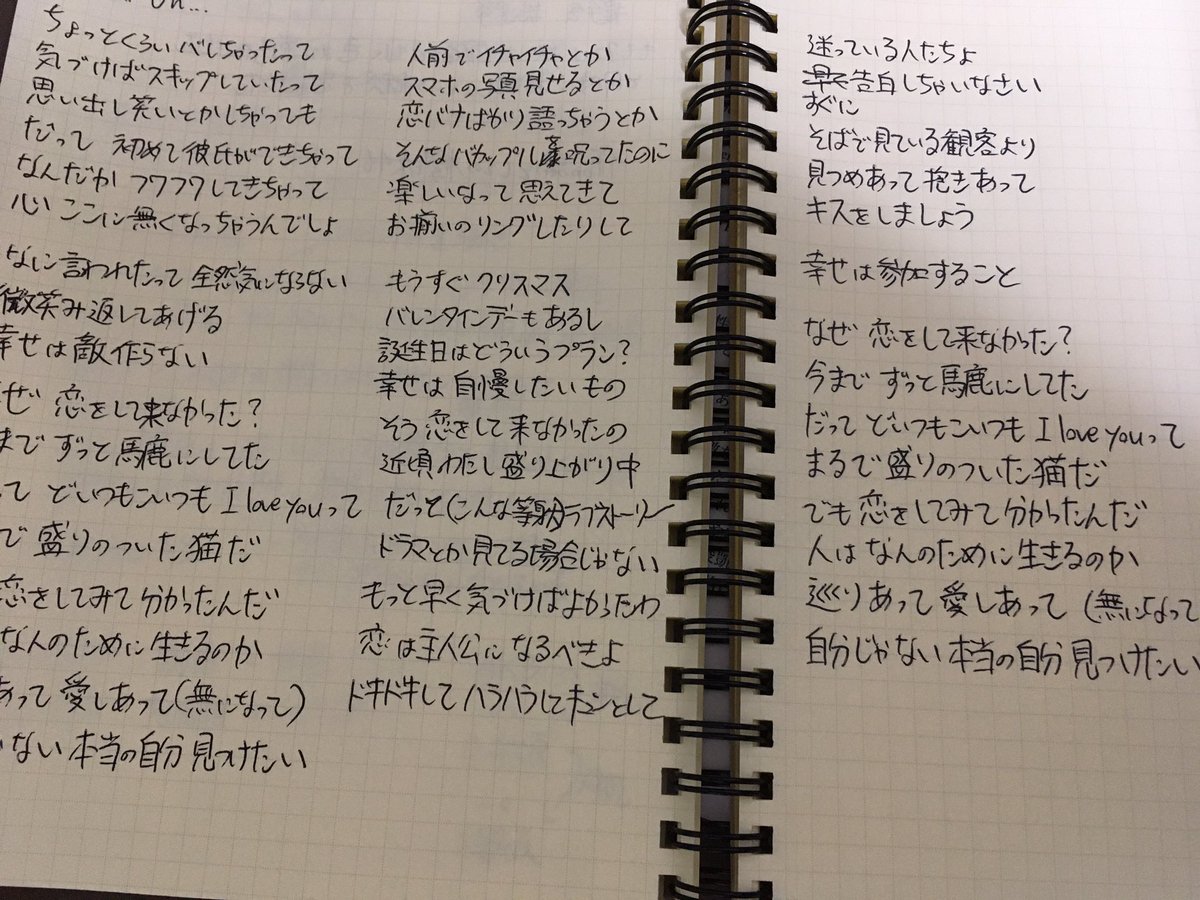 Uh...
ちょっとくらいバしちゃったって
気づけばスキップしていたって
思い出し笑いとかしちゃっても
だって 初めて彼氏ができちゃって
なんだか フワフワしてきちゃって
心 ここに無くなっちゃうんでしょ
なに言われたって 全然気にならない
微笑み返してあげる
幸せは敵作らない
ぜ 恋をして来なかった?
まで ずっと馬鹿にしてた
って どいつもこいつも I love youって
で 盛りのついた猫だ
恋をしてみて分かったんだ
なんのために生きるのか
あって 愛しあって(無になって)
ない 本当の自分 見つけたい
人前でイチャイチャとか
スマホの写真見せるとか
恋バナばかり語っちゃうとか
そんなバカップル 呪ってたのに
楽しいなって 思えてきて
お揃いのリングしたりして
もうすぐ クリスマス
バレンタインデーもあるし
誕生日はどういうプラン?
幸せは 自慢したいもの
そう 恋をして 来なかったの
近頃 わたし 盛り上がり中
だっと(こんな等身ラブストーリー
ドラマとか見てる場合じゃない
もっと早く気づけばよかったわ
恋は主人公になるべきよ
ドキドキして ハラハラして キュンとして
迷っている人たちよ
早く告白しちゃいなさい
すぐに
そばで見ている観客より
見つめあって抱きあって
キスをしましょう
幸せは参加すること
なぜ 恋をして来なかった?
今まで ずっと馬鹿にしてた
だって どいつもこいつも I love youって
まるで 盛りのついた猫だ
でも 恋をしてみて分かったんだ
人は なんのために生きるのか
巡りあって 愛しあって (無になって
自分じゃない 本当の自分 見つけたい